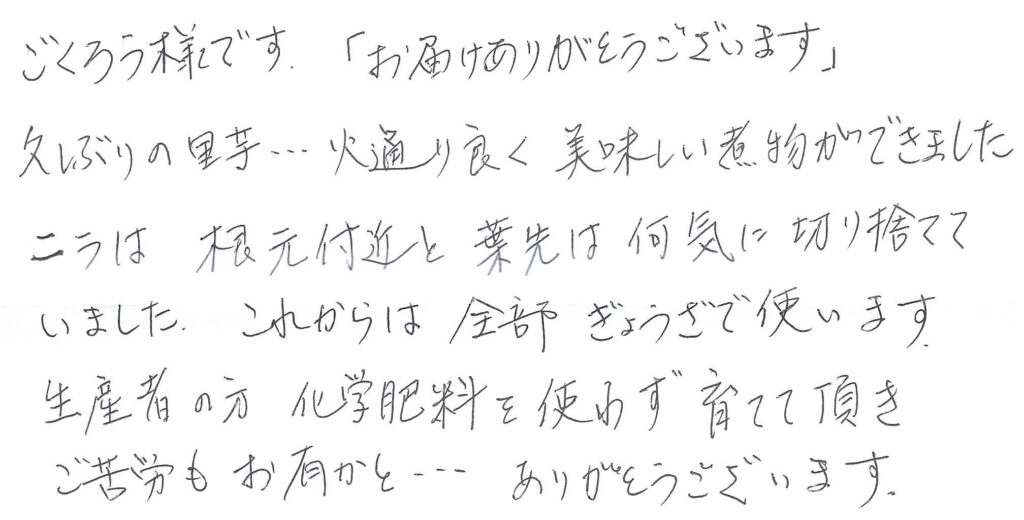 ごくろう様です.「お届けありがとうございます」
久しぶりの里芋… 火通り良く 美味しい煮物ができました
ニラは 根元付近と 葉先は 何気に 切り捨てて
いました. これからは 全部 ぎょうざで使います.
生産者の方 化学肥料を使わず 育てて頂き
ご苦労も お有かと… ありがとうございます.